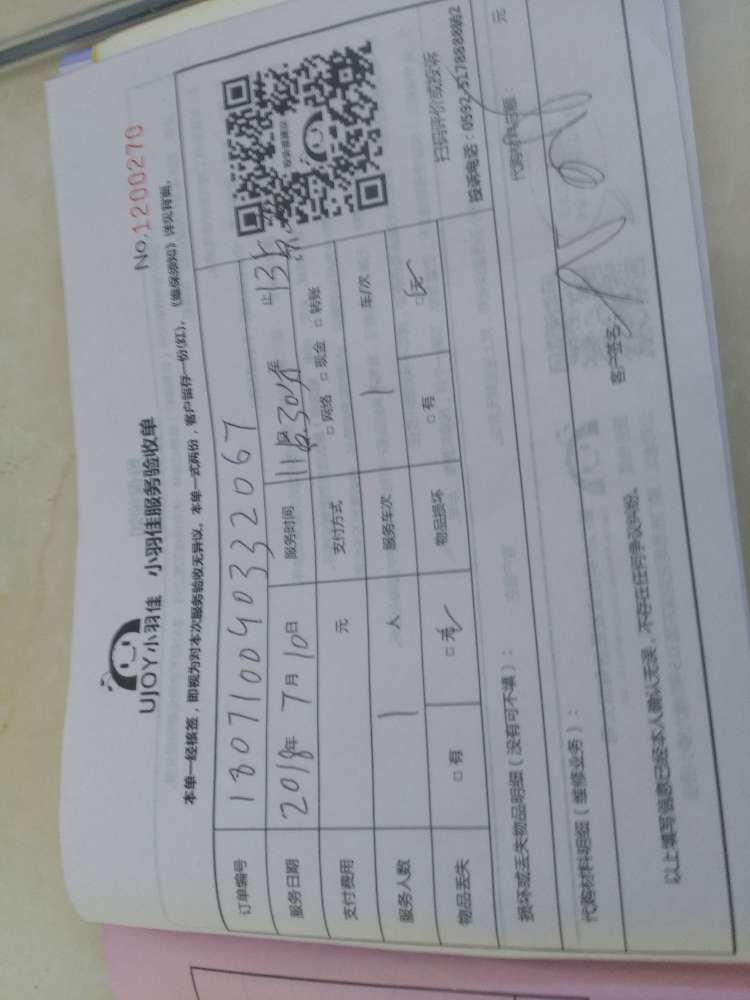 UJOY小羽佳 小羽佳服务验收单
No.1200270
本单一经核签，即视为对本次服务验收无异议。本单一式两份，客户留存一份(红)，《维保须知》详见背面。
订单编号 180710040332067
服务日期 2018年 7月 10日 服务时间 11 30 止 13
支付费用 元 支付方式 □ 网络 □ 现金 □ 转账
服务人数 1 人 服务车次 1 车/次
物品丢失 □ 有 □ 无 物品损坏 □ 有 □ 无
扫码评价或投诉
投诉电话：0592-5178888
损坏或丢失物品明细（没有可不填）：
代购材料明细（维修业务）： 元
以上填写信息已经本人确认无误，不存在任何争议纠纷。
客户签名：